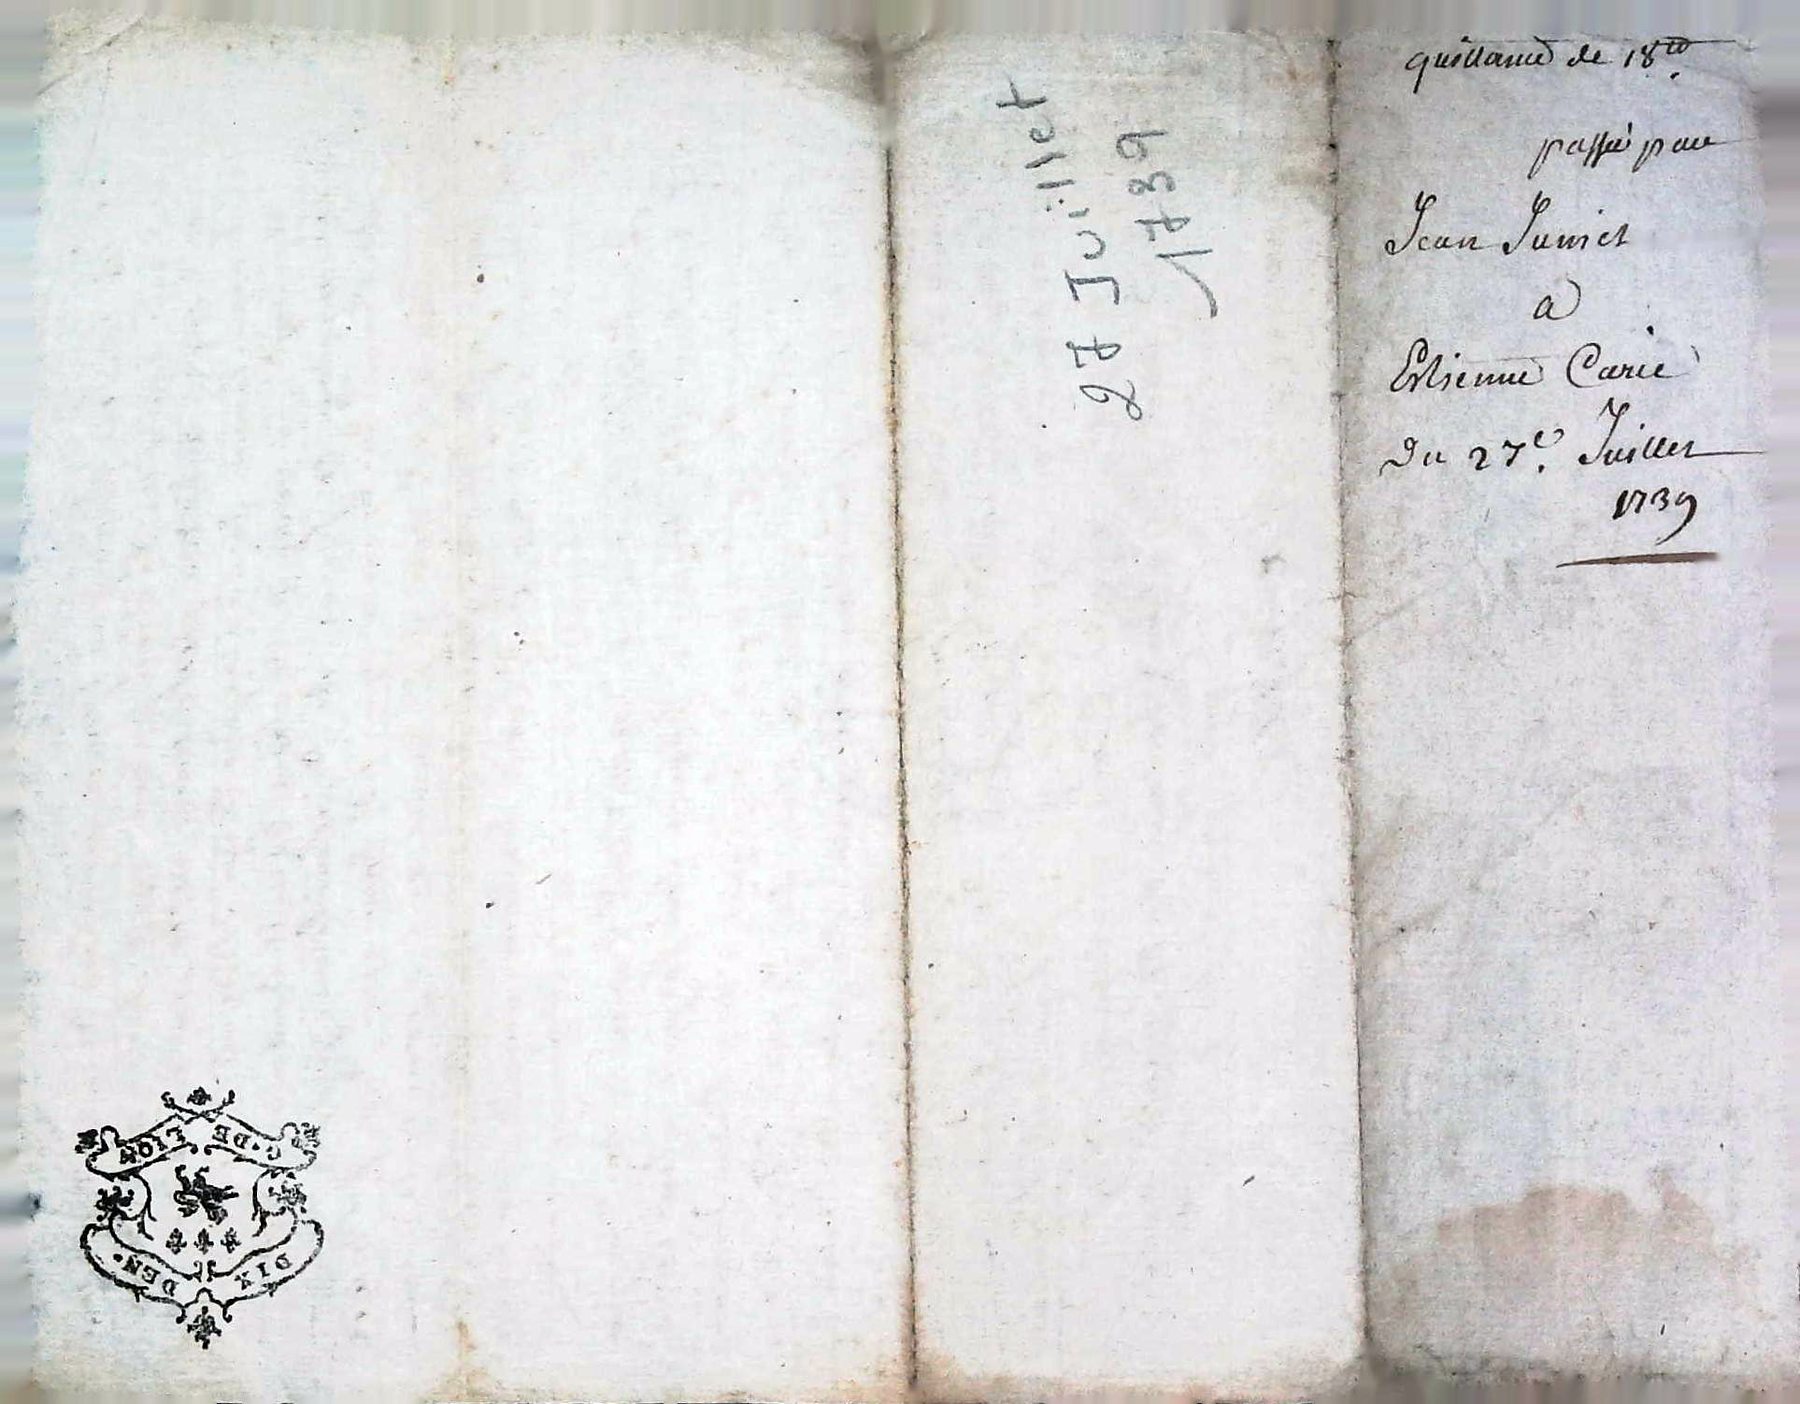 quittance de 18ᵗᵗ
passé par
Jean Juniet
a
Estienne Carie
Du 27ᵉ. Juillet
1739
27 Juillet
1739
G. DE LION
DIX DEN.